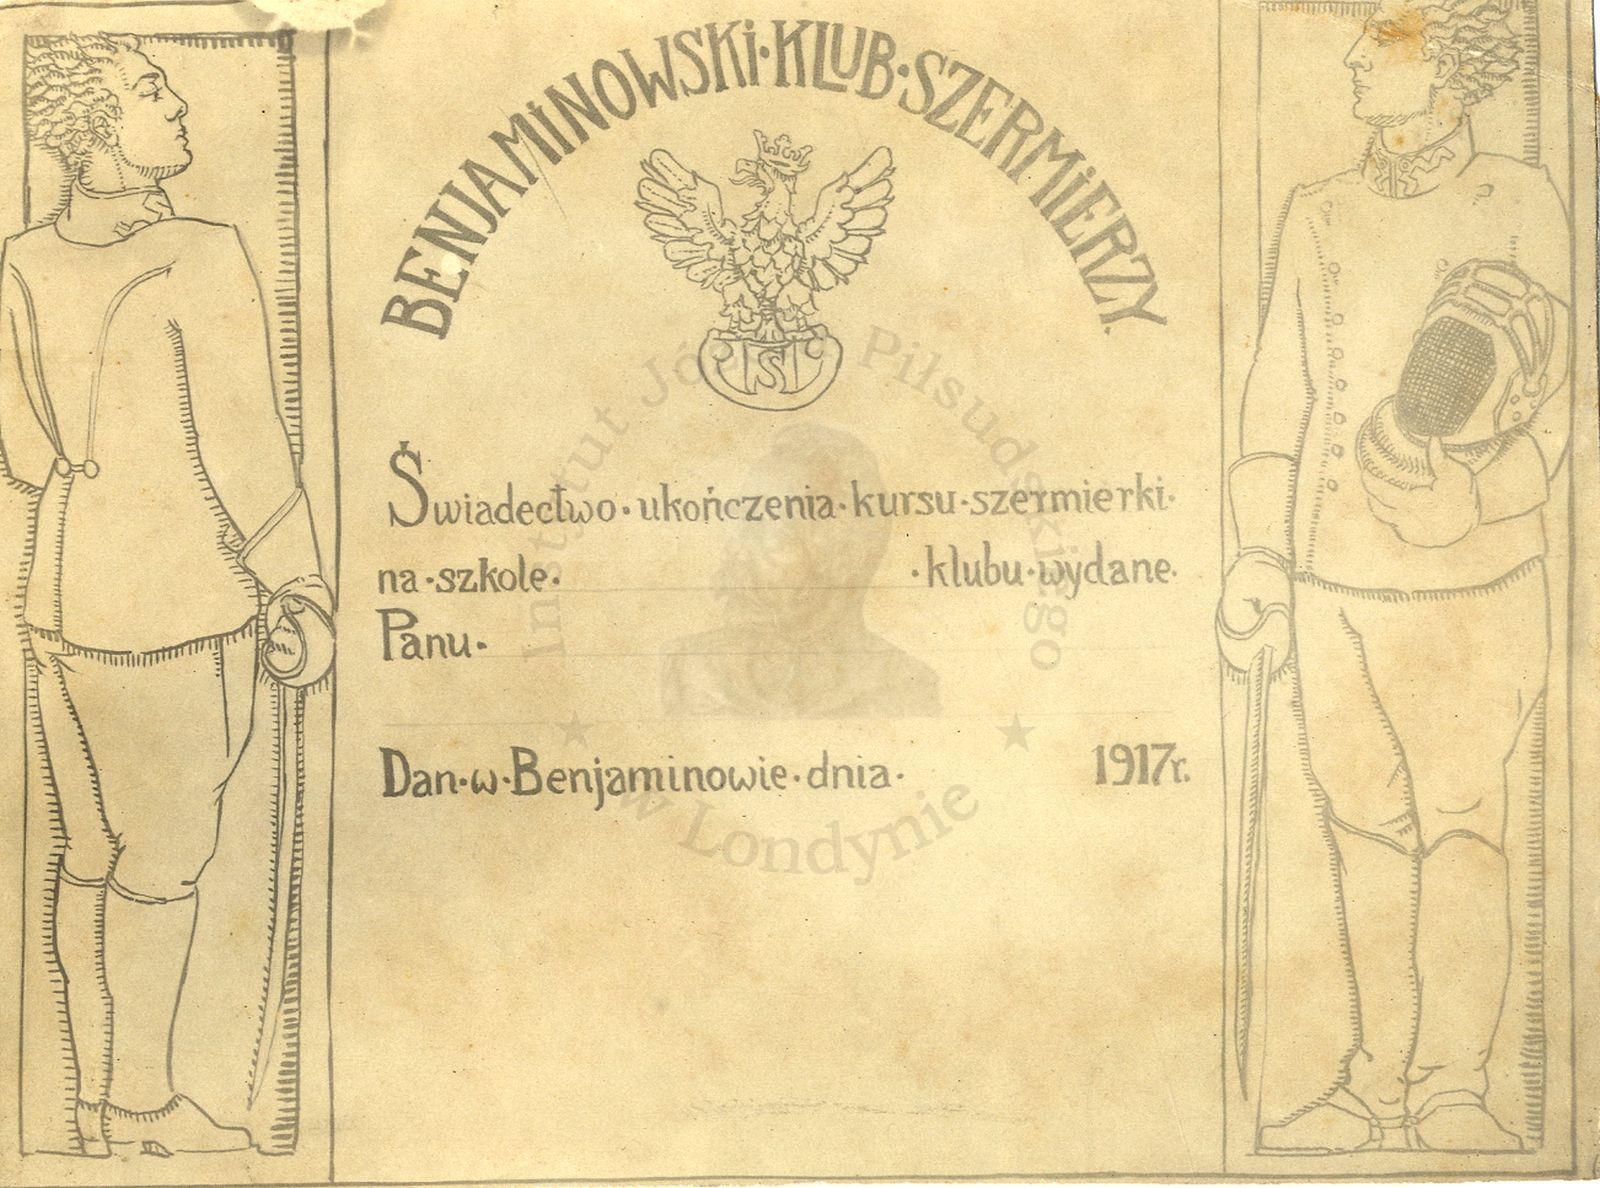 BENJAMiNOWSKi·KLUB·SZERMiERZY.
S
Świadectwo·ukończenia·kursu·szermierki·
na·szkole· ·klubu·wydane·
Panu·
Dan·w·Benjaminowie·dnia· 1917r.
Instytut Józefa Piłsudskiego
w Londynie